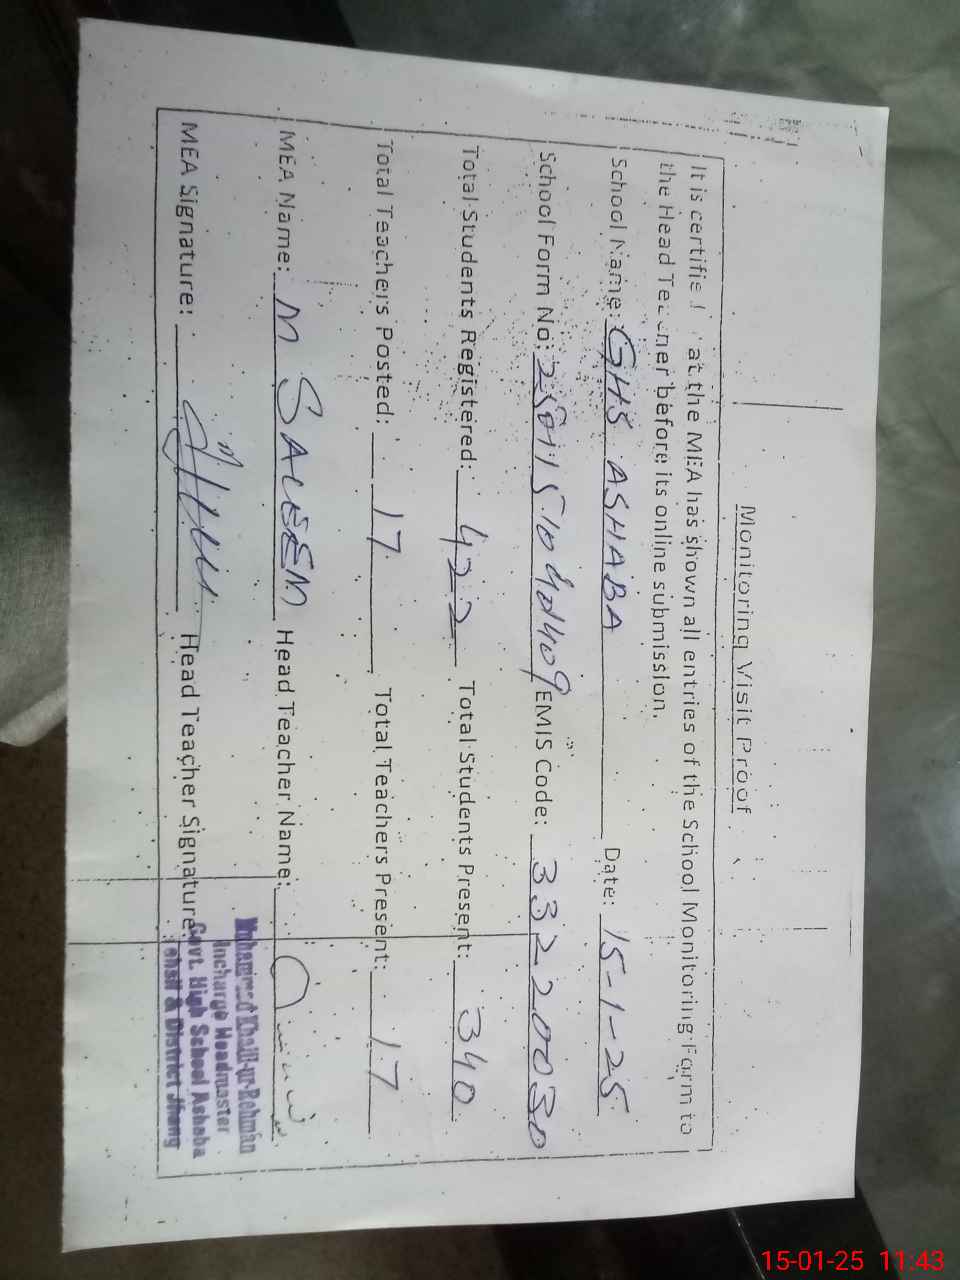 Monitoring Visit Proof
It is certified that the MEA has shown all entries of the School Monitoring Form to
the Head Teacher before its online submission.
School Name: GHS ASHABA Date: 15-1-25
School Form No: EMIS Code: 33220030
Total Students Registered: 422 Total Students Present: 340
Total Teachers Posted: 17 Total Teachers Present: 17
MEA Name: M SALEEM Head Teacher Name:
MEA Signature: Head Teacher Signature:
Muhammad Khalil-ur-Rehman
Incharge Headmaster
Govt. High School Ashaba
Tehsil & District Jhang
15-01-25 11:43